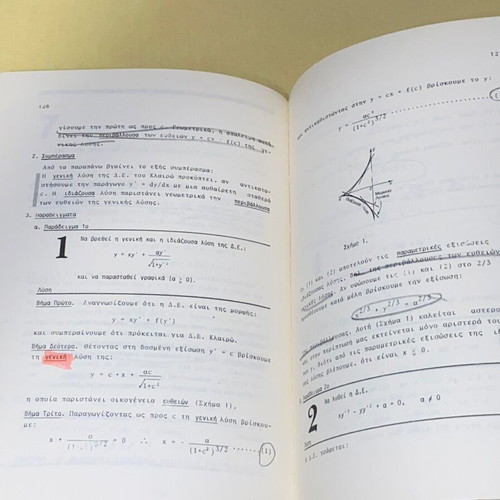 120
γίσουμε την πρώτη ως προς c. Γεωμετρικά, η απαλειφή αυτή
δίνει την περιβάλλουσα των ευθειών y = cx + f(c) της γε-
νικής λύσης.
2. Συμπέρασμα
Από τα παραπάνω βγαίνει το εξής συμπέρασμα:
Η γενική λύση της Δ.Ε. του Κλαιρώ προκύπτει, αν αντικατα-
στήσουμε την παράγωγο y' = dy/dx με μια αυθαίρετη σταθερά
c. Η ιδιάζουσα λύση παριστάνει γεωμετρικά την περιβάλλουσα
των ευθειών της γενικής λύσης.
3. Παραδείγματα
α. Παράδειγμα 1ο
1 Να βρεθεί η γενική και η ιδιάζουσα λύση της Δ.Ε.:
y = xy' + ay'/√1+y'²
και να παρασταθεί γραφικά (a ≥ 0).
Λύση
Βήμα Πρώτο. Αναγνωρίζουμε ότι η Δ.Ε. είναι της μορφής:
y = xy' + f(y')
και συμπεραίνουμε ότι πρόκειται για Δ.Ε. Κλαιρώ.
Βήμα Δεύτερο. Θέτοντας στη δοσμένη εξίσωση y' = c βρίσκουμε
τη γενική λύση της:
y = c·x + ac/√1+c²
η οποία παριστάνει οικογένεια ευθειών (Σχήμα 1).
Βήμα Τρίτο. Παραγωγίζοντας ως προς c τη γενική λύση βρίσκου-
με:
x + a/(1+c²)^3/2 = 0 ∴ x = - a/(1+c²)^3/2 (1)
12
και αντικαθιστώντας στην y = cx + f(c) βρίσκουμε το y:
y = ac³/(1+c²)^3/2
Σχήμα 1.
(1) και (2) αποτελούν τις παραμετρικές εξισώσεις
ιδιάζουσας λύσης, της περιβάλλουσας των ευθειών
λύσης. Αν υψώσουμε τις (1) και (2) στο 2/3
προσθέσουμε κατά μέλη βρίσκουμε την εξίσωση:
x^2/3 + y^2/3 = a^2/3
περιβάλλουσας. Αυτή (Σχήμα 1) καλείται αστερο
στην περίπτωση μας εκτείνεται μόνο αριστερά του
y, διότι από τις παραμετρικές εξισώσεις της ιδι
λύσης βλέπουμε, ότι είναι x ≤ 0.
Παράδειγμα 2ο
2 Να λυθεί η Δ.Ε.
xy'² - yy' + a = 0, a ≠ 0
Λύση
Δ.Ε.